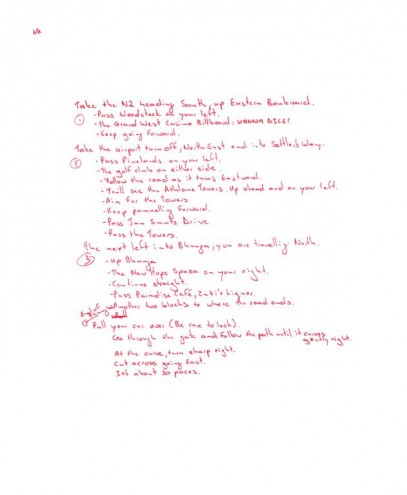 Take the N2 heading South, up Eastern Boulevard.
① - Pass Woodstock on your left.
- The Grand West Casino Billboard: WANNA DICE?
- Keep going forward.
Take the airport turn off, North East and into Settlers Way.
② - Pass Pinelands on your left.
- The golf clubs on either side.
- Follow the road as it turns Eastward.
- You'll see the Athlone Towers. Up ahead and on your left.
- Aim for the Towers
- Keep pummelling forward.
- Pass Jan Smuts Drive.
- Pass the Towers.
The next left into Bhunga, you are travelling North.
③ - Up Bhunga
- The New Hope Spaza on your right.
- Continue straight.
- Pass Paradise Café, Zuki's Liquor.
another two blocks to where the road ends.
Pull your car over (Be sure to lock).
Go through the gate and follow the path until it curves gently right.
At the curve, turn sharp right.
Cut across going East.
It's about 30 paces.